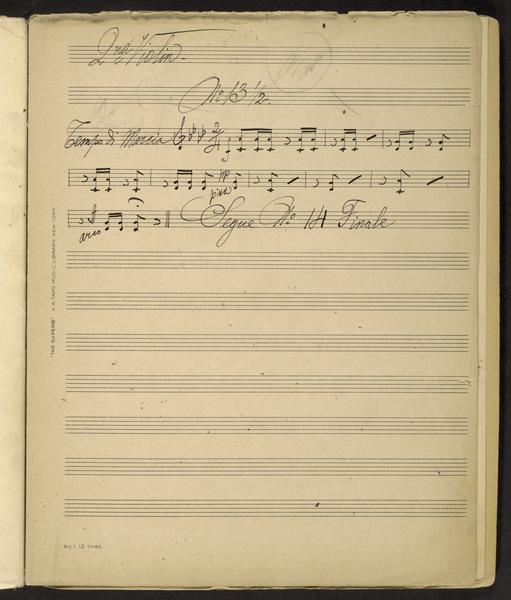 2nd Violin.
No. 13 1/2.
Tempo di Marcia
pp
pizz
arco
Segue No. 14 Finale
"THE SUPERB" A.W. TAMS MUSIC LIBRARY, NEW YORK.
No 1 12 lines